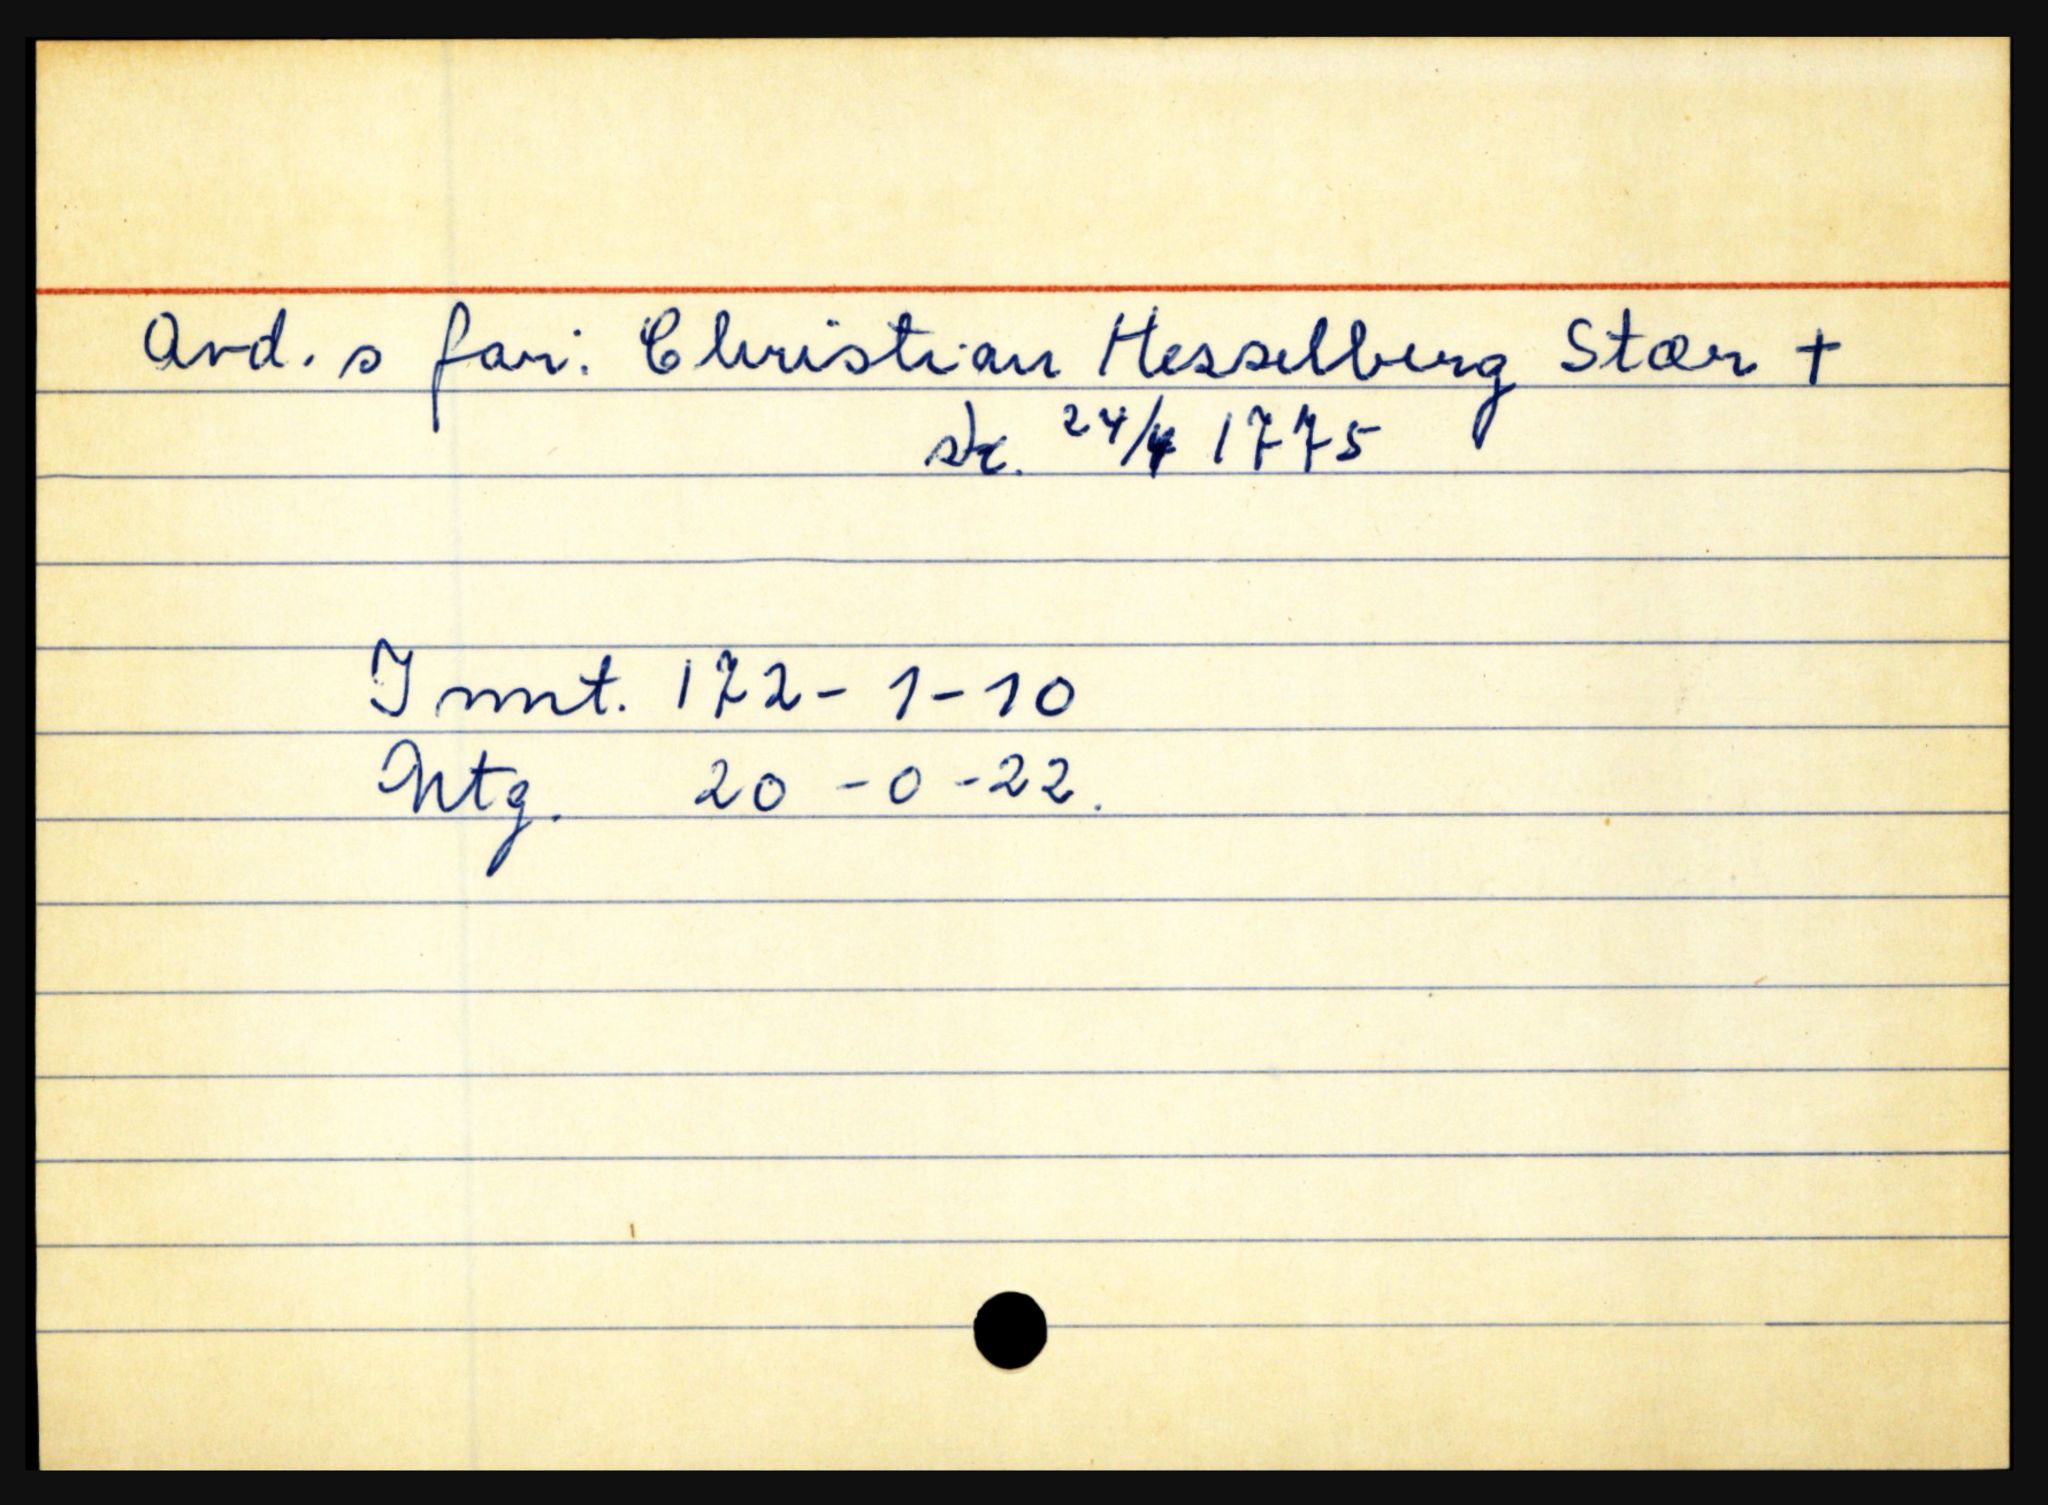 Avd. s far: Christian Hesselberg Stær +
sk. 24/4 1775
Innt. 172 - 1 - 10
Utg. 20 - 0 - 22.